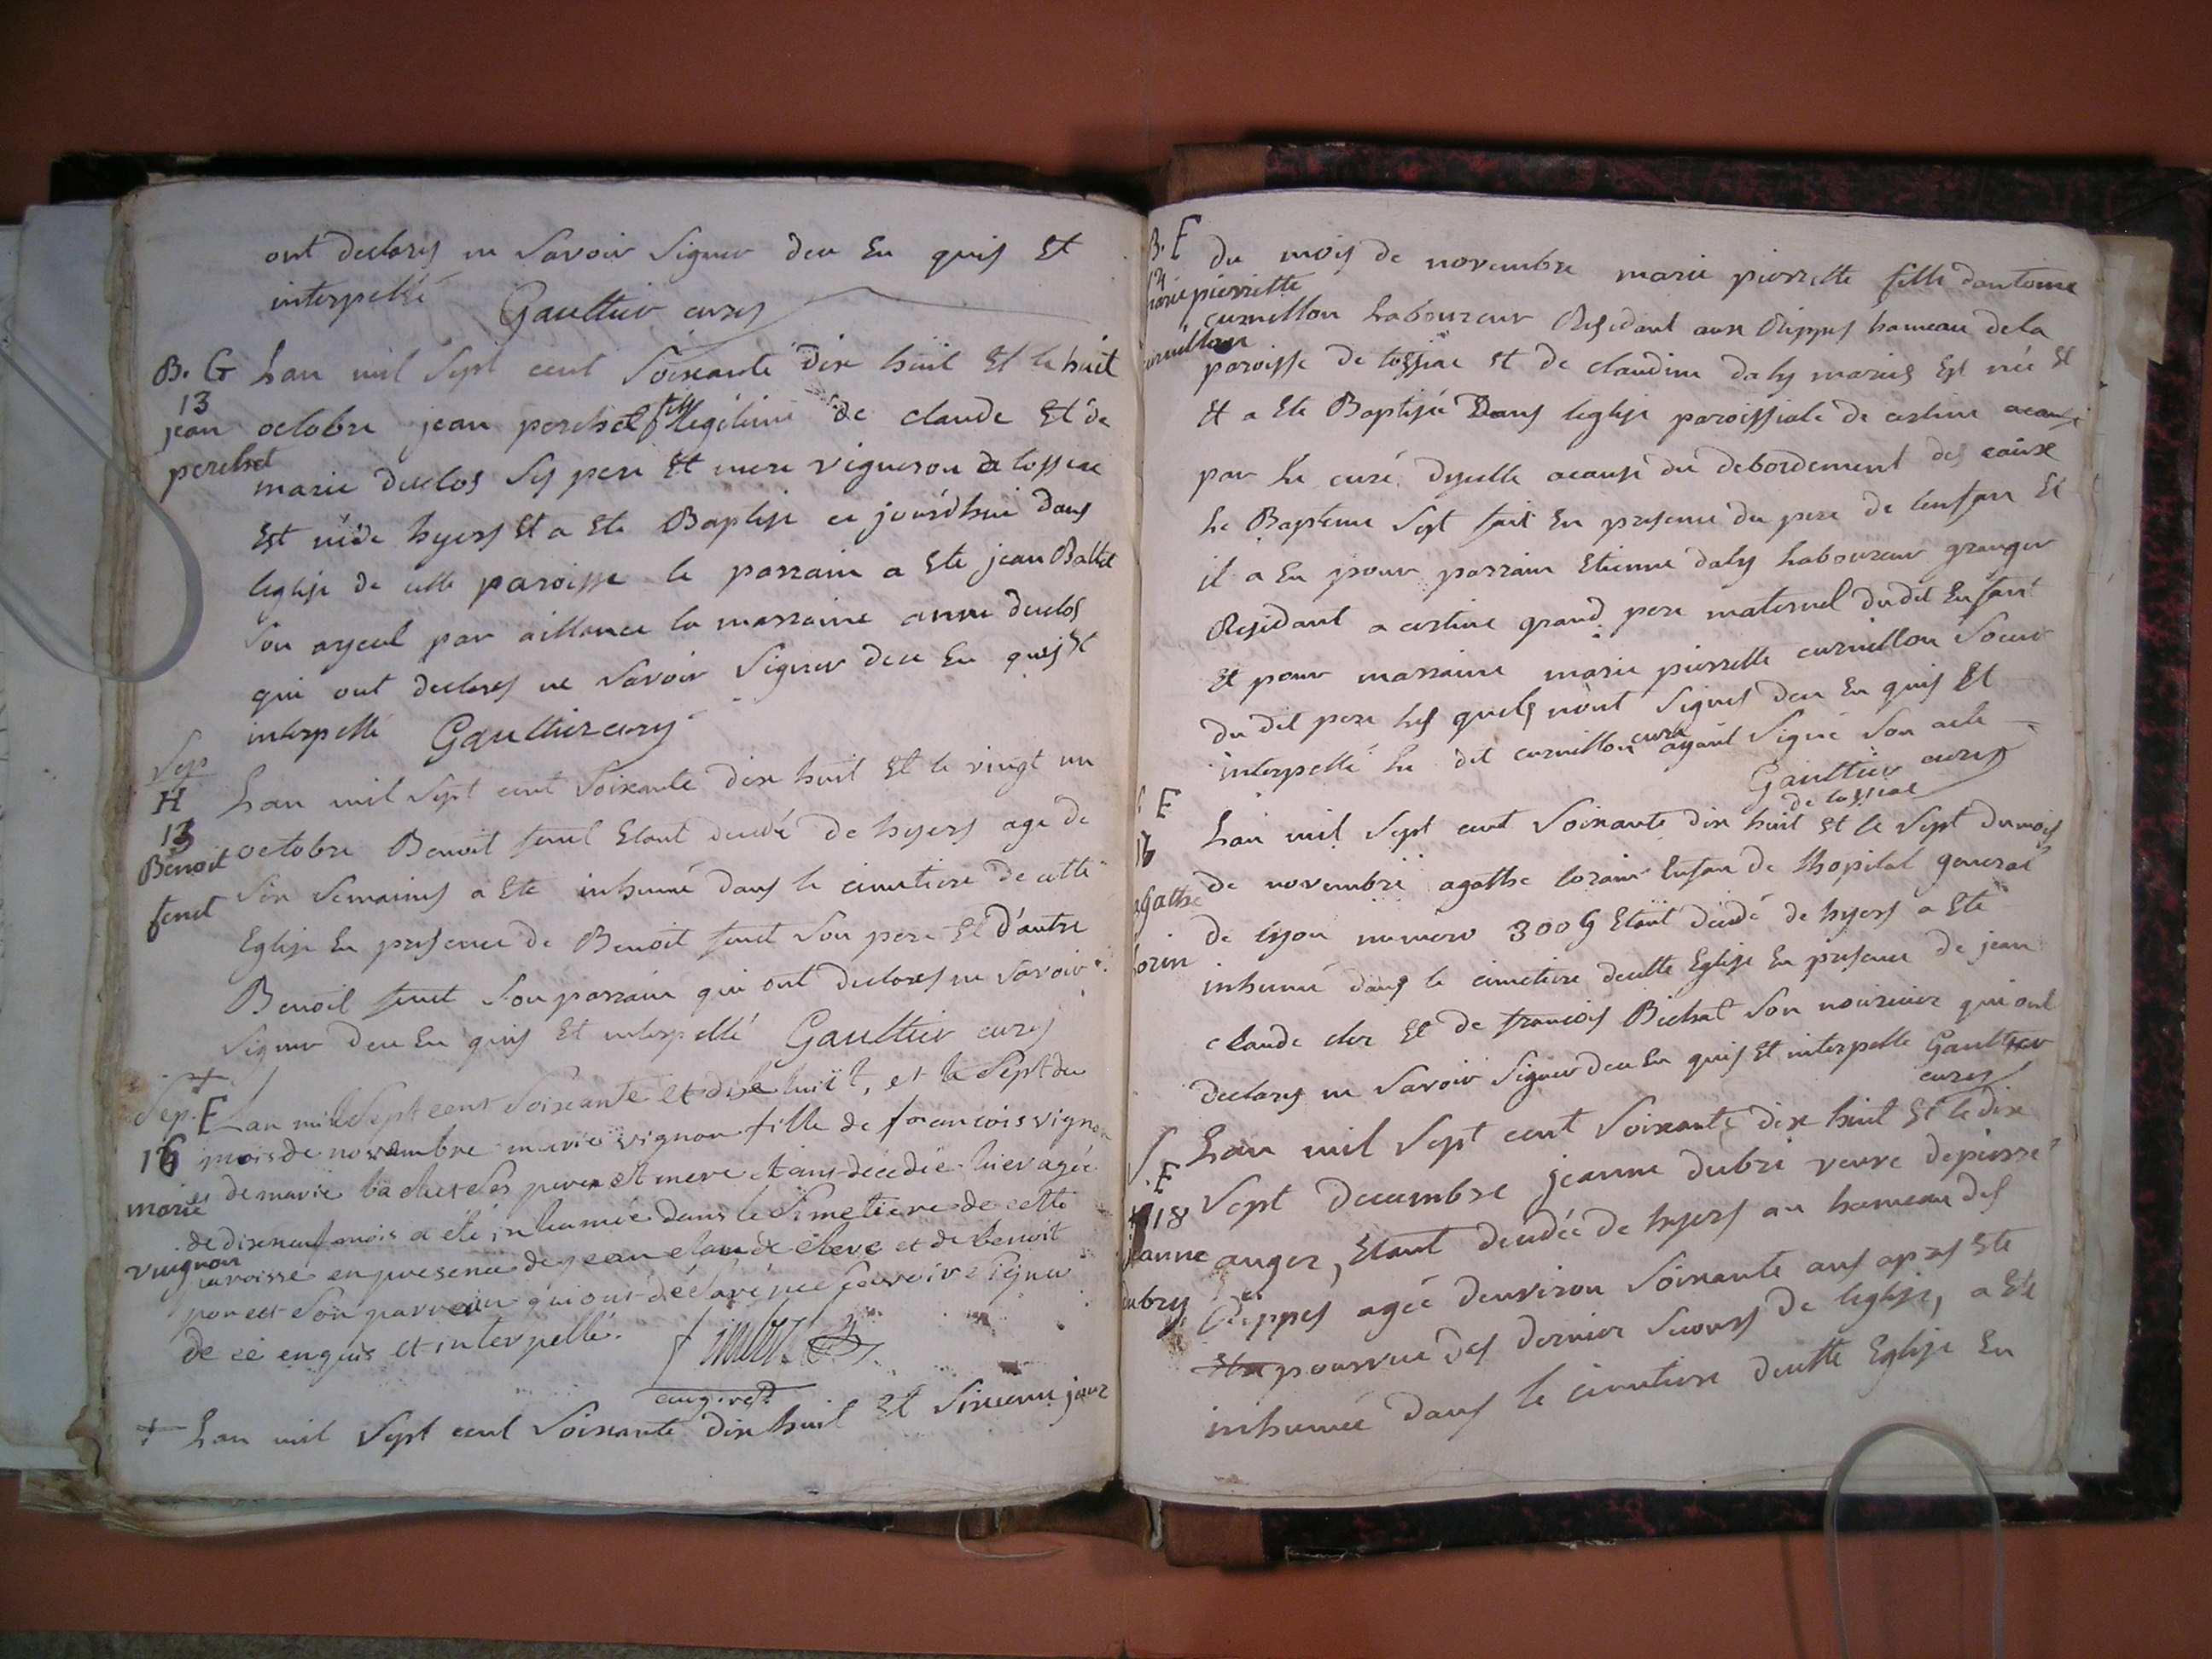 ont declarés ne Savoir Signer deu En quis Et
interpellé Gaultier curez
B. G Lan mil Sept cent Soixante dix huit Et le huit
13
jean octobre jean perchet fils legitime de claude Et de
perchet
marie duclos Ses pere Et mere vigneron de tossiae
Est né de hyers Et a Ete Baptise ce jourdhui dans
leglise de cette paroisse le parrain a Ete jean Ballet
Son ayeul par aillance la marraine anne duclos
qui ont declarés ne Savoir Signer deu En quis Et
interpellé Gaultier curez
Sep
H Lan mil Sept cent Soixante dix huit Et le vingt un
13
Benoit octobre Benoit feret Etant decedé de hyers age de
feret Six Semaines a Ete inhumé dans le cimetiere de cette
Eglise En presence de Benoit feret Son pere Et d'autre
Benoit feret Son parrain qui ont declares ne Savoir
Signer deu En quis Et interpellé Gaultier curez
Sep. E Lan mil Sept cent Soixante et dix huit, et le Sept du
16 mois de novembre marie vignon fille de francois vignon
marie et de marie Ses pere et mere etant decedée hier agée
de dixneuf mois a été inhumée dans le Simetiere de cette
vuignon
paroisse en presence de jean claude clere et de benoit
poncet Son parrain qui ont déclaré ne Scavoire Signer
de ce enquis et interpellé.
+ Lan mil Sept cent Soixante dix huit Et Sixieme jour
B. E du mois de novembre marie pierrette fille dantoine
14
marie pierrette
curnillon Laboureur Residant aux Rippes hameau de la
curnillon
paroisse de tossiae Et de claudine daly mariés Est née Et
Et a Ete Baptisée Dans leglise paroissiale de certine acause
par le curé dycelle acause du debordement des eaux
Le Bapteme Sest fait En presence du pere de lenfan Et
il a Eu pour parrain Etienne daly Laboureur granger
Residant a certine grand pere maternel dudit Enfant
Et pour marraine marie pierrette curnillon Soeur
du dit pere les quels nont Signes deu En quis Et
interpellé Le dit curnillon curé ayant Signé Son acte
Gaultier curez
de tossiae
S E
Lan mil Sept cent Soixante dix huit Et le Sept du mois
17
agathe de novembre agathe lorain Enfan de lhopital general
de lyon numero 3009 Etant decedé de hyers a Ete
lorin
inhumé dans le cimetiere decette Eglise En presence de jean
claude cler Et de francois Bichat Son nouricier qui ont
declares ne Savoir Signer deu En quis Et interpelle Gaultier
curez
S. Lan mil Sept cent Soixante dix huit Et le dix
E
18 Sept decembre jeanne dubri veuve de pierre
jeanne auger, Etant decedée de hyers au hameau des
dubry Rippes agée denviron Soixante ans apres Ete
Etre pourvue des dernier Secours de leglise, a Ete
inhumée dans le cimetiere decette Eglise En